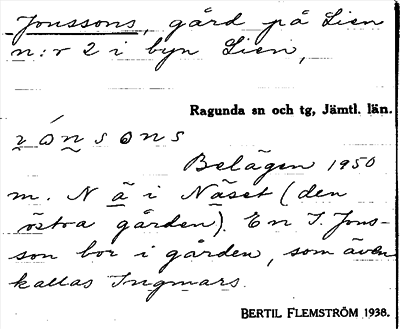 Jonssons, gård på Lien
n:r 2 i byn Lien,
Ragunda sn och tg, Jämtl. län.
Belägen 1950
m. N ä i Näset (den
östra gården). En J. Jons-
son bor i gården, som även
kallas Ingmars.
BERTIL FLEMSTRÖM 1938.